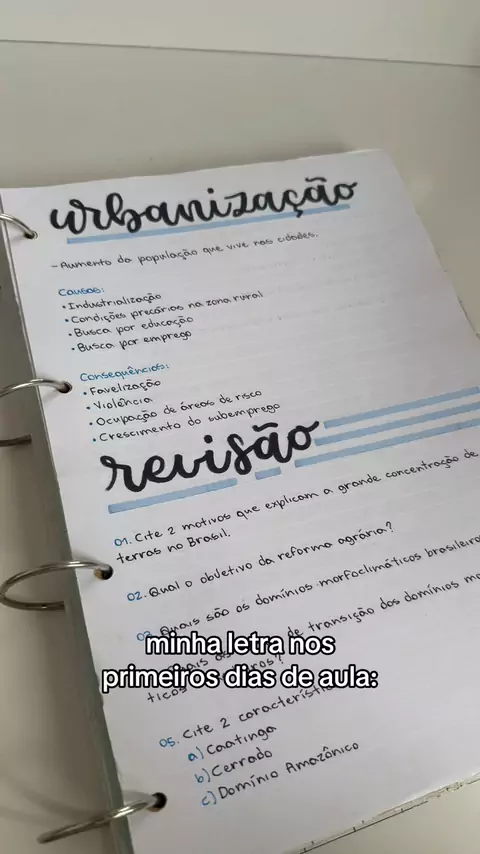 urbanização
- Aumento da população que vive nas cidades.
Causas:
• Industrialização
• Condições precárias na zona rural
• Busca por educação
• Busca por emprego
Consequências:
• Favelização
• Violência
• Ocupação de áreas de risco
• Crescimento do subemprego
revisão
01. Cite 2 motivos que explicam a grande concentração de
terras no Brasil.
02. Qual o objetivo da reforma agrária?
03. Quais são os domínios morfoclimáticos brasileiros
de transição dos domínios
minha letra nos
primeiros dias de aula:
05. Cite 2
a) Caatinga
b) Cerrado
c) Domínio Amazônico